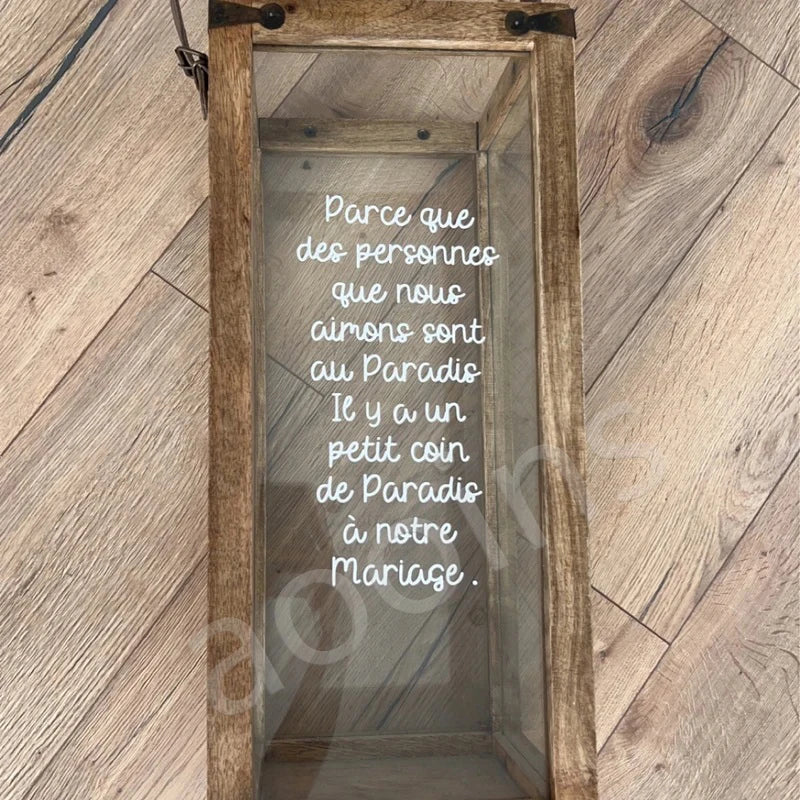 Parce que
des personnes
que nous
aimons sont
au Paradis
Il y a un
petit coin
de Paradis
à notre
Mariage.
aooins